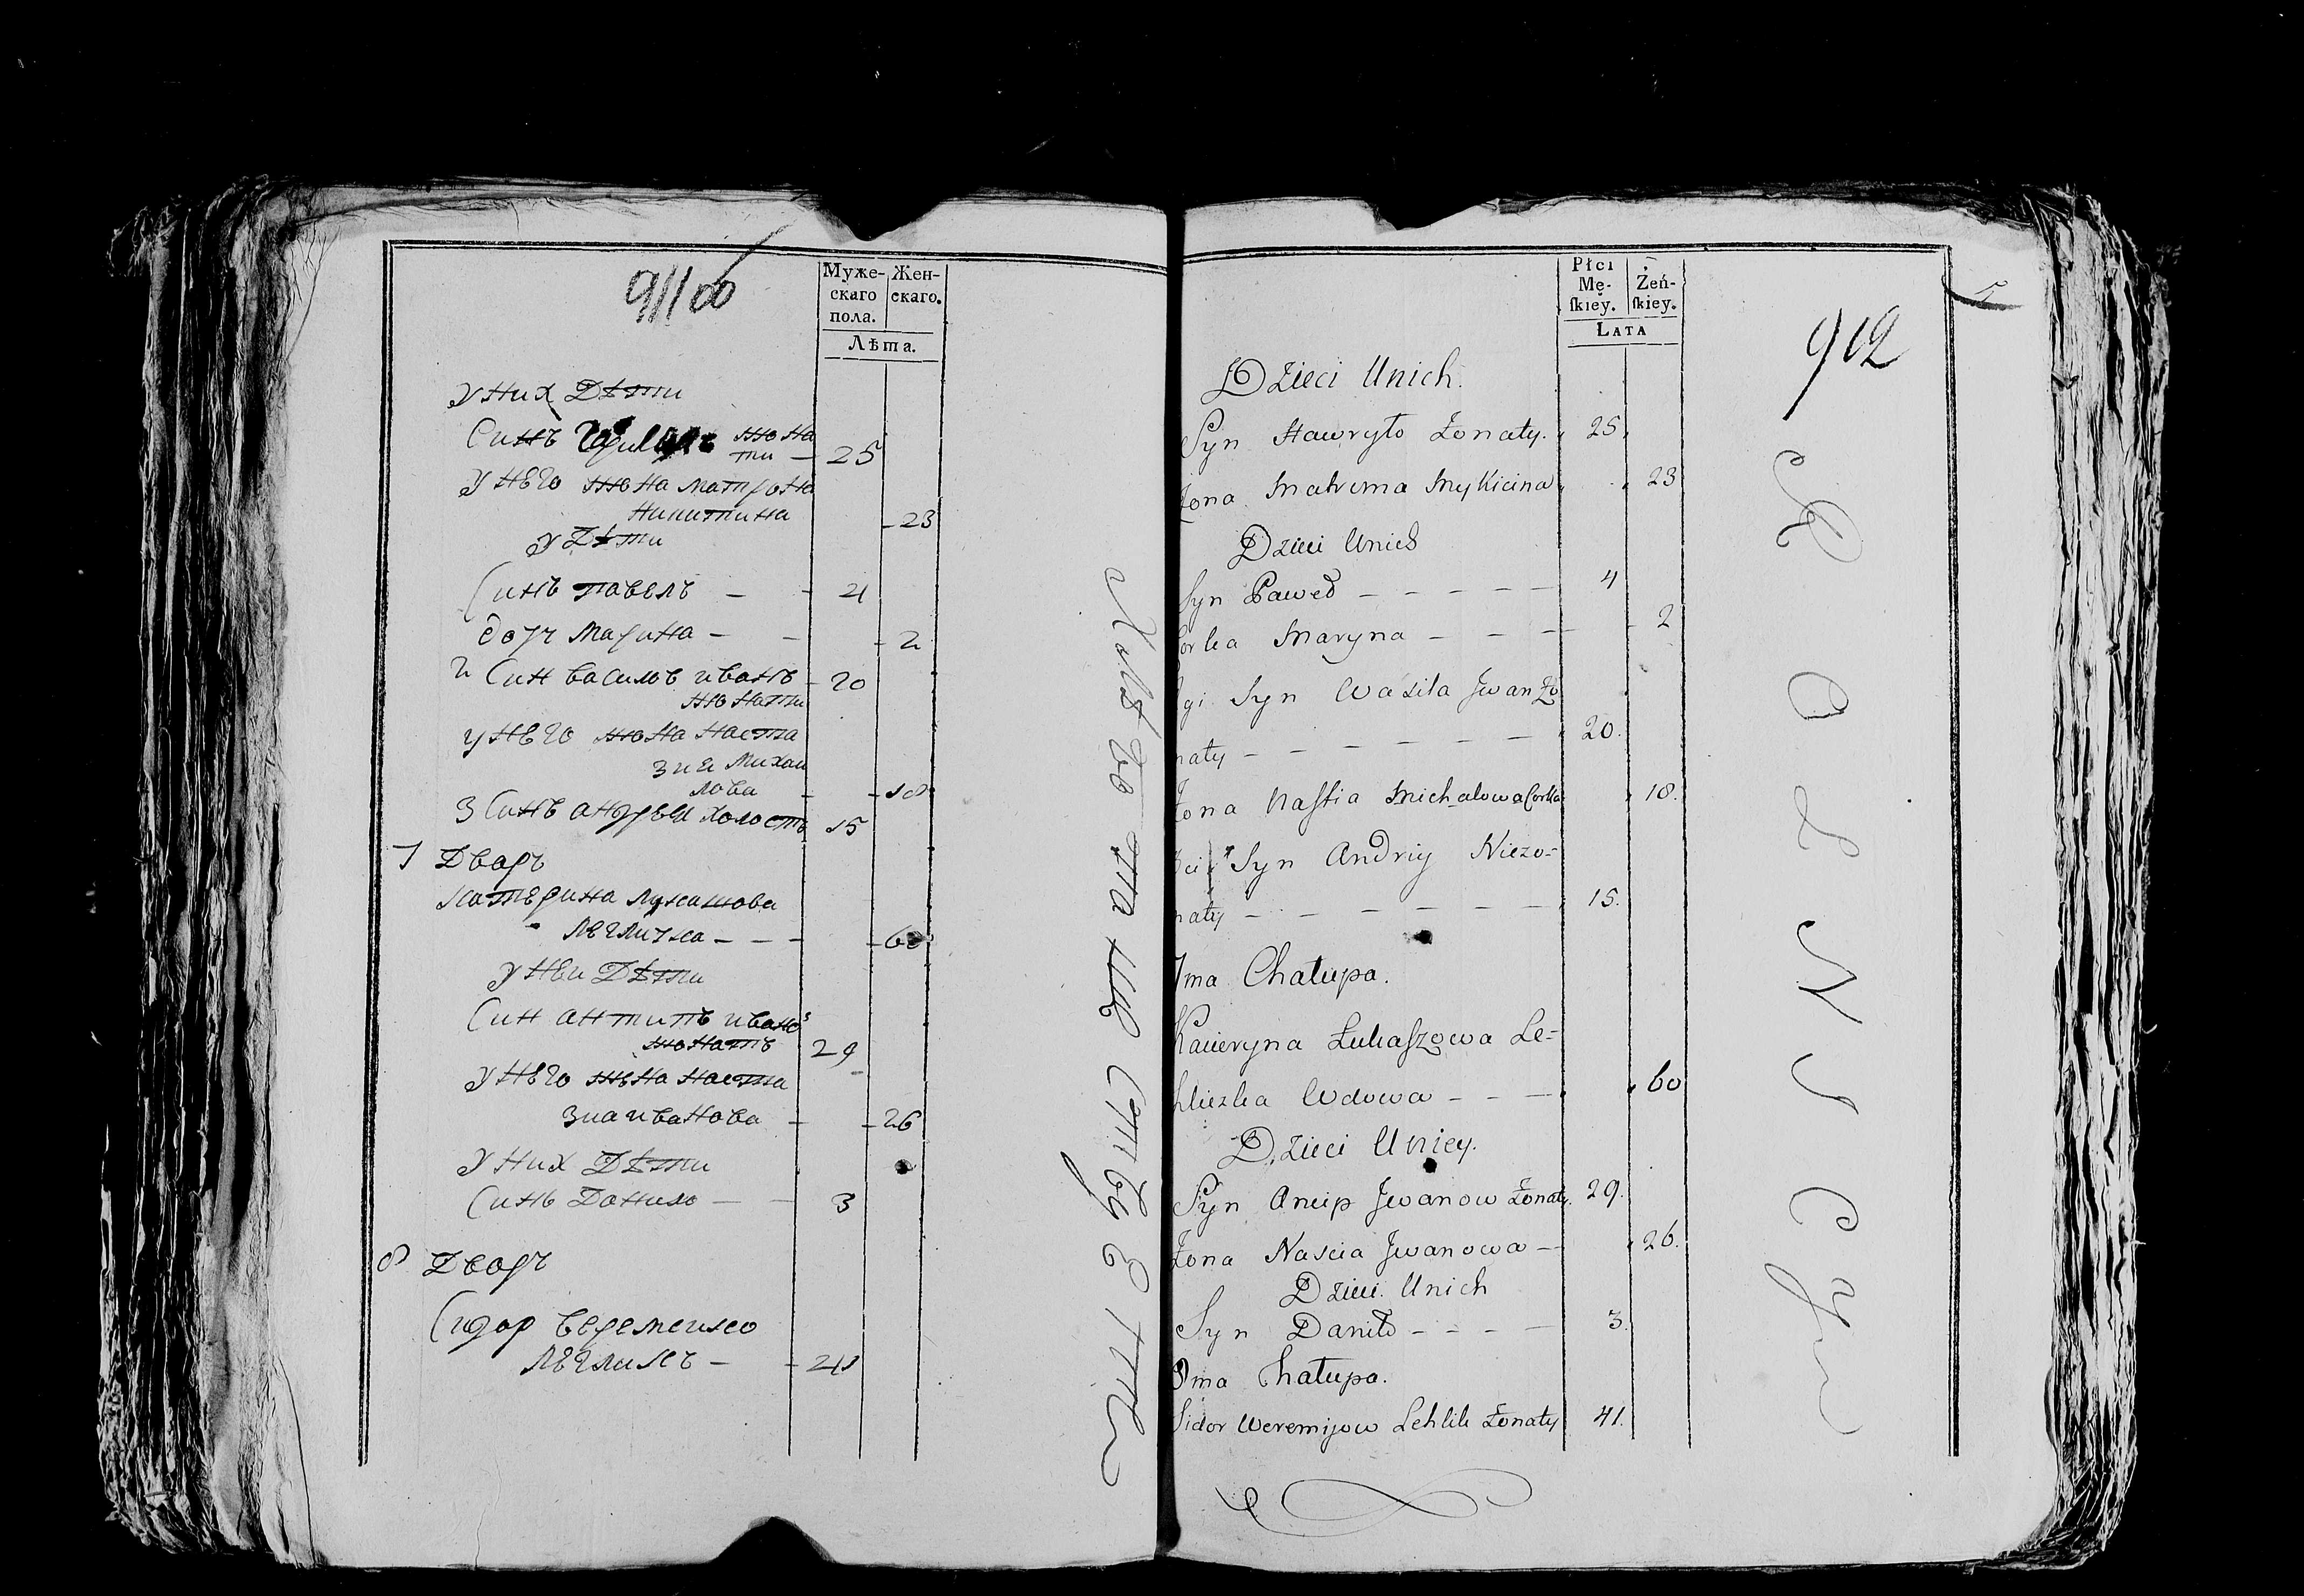 Муже-
скаго
пола.
Жен-
скаго.
Лѣта.
у них Дѣти
Синъ жона
ти — 25
у него жона матрона
никитина - 23
у Дѣти
Синъ павелъ - - 4
дочъ марина - - - 2
2 Син василъ иванъ - 20
жонати
у него жона наста
зиея Михаи
лова - - 18
3 Синъ андреи холостъ 15
7 Дворъ
катерина лукашова
легличка - - - - 60
у неи Дѣти
Син антипъ ивано
жонатъ 29
у него жена наста
зиа иванова - - 26
у них Дѣти
Синъ Данило - - 3
8 Дворъ
Сидор веремеико
легликъ - - 41
Płci
Mę-
ſkiey.
Żeń-
ſkiey.
LATA
912
Dzieci Unich.
Syn Hawryło Żonaty. 25.
Żona Matrona Mykicina 23
Dzieci Unich
Syn Paweł - - - - - 4
Corka Maryna - - - - 2
2gi Syn Wasila Jwan Żo
naty - - - - - - - 20.
Żona Naſtia Michałowa Corka 18.
3ci Syn Andriy Nieżo=
naty - - - - - - - 15.
7ma Chałupa.
Kateryna Łukaſzowa Le=
hliczka Wdowa - - - 60
Dzieci Uniey.
Syn Antip Jwanow Żonaty. 29.
Żona Nascia Jwanowa - 26.
Dzieci Unich
Syn Daniło - - - - 3.
8ma Chałupa.
Sidor Weremijow Lehlik Żonaty 41.
R O L N I C Y